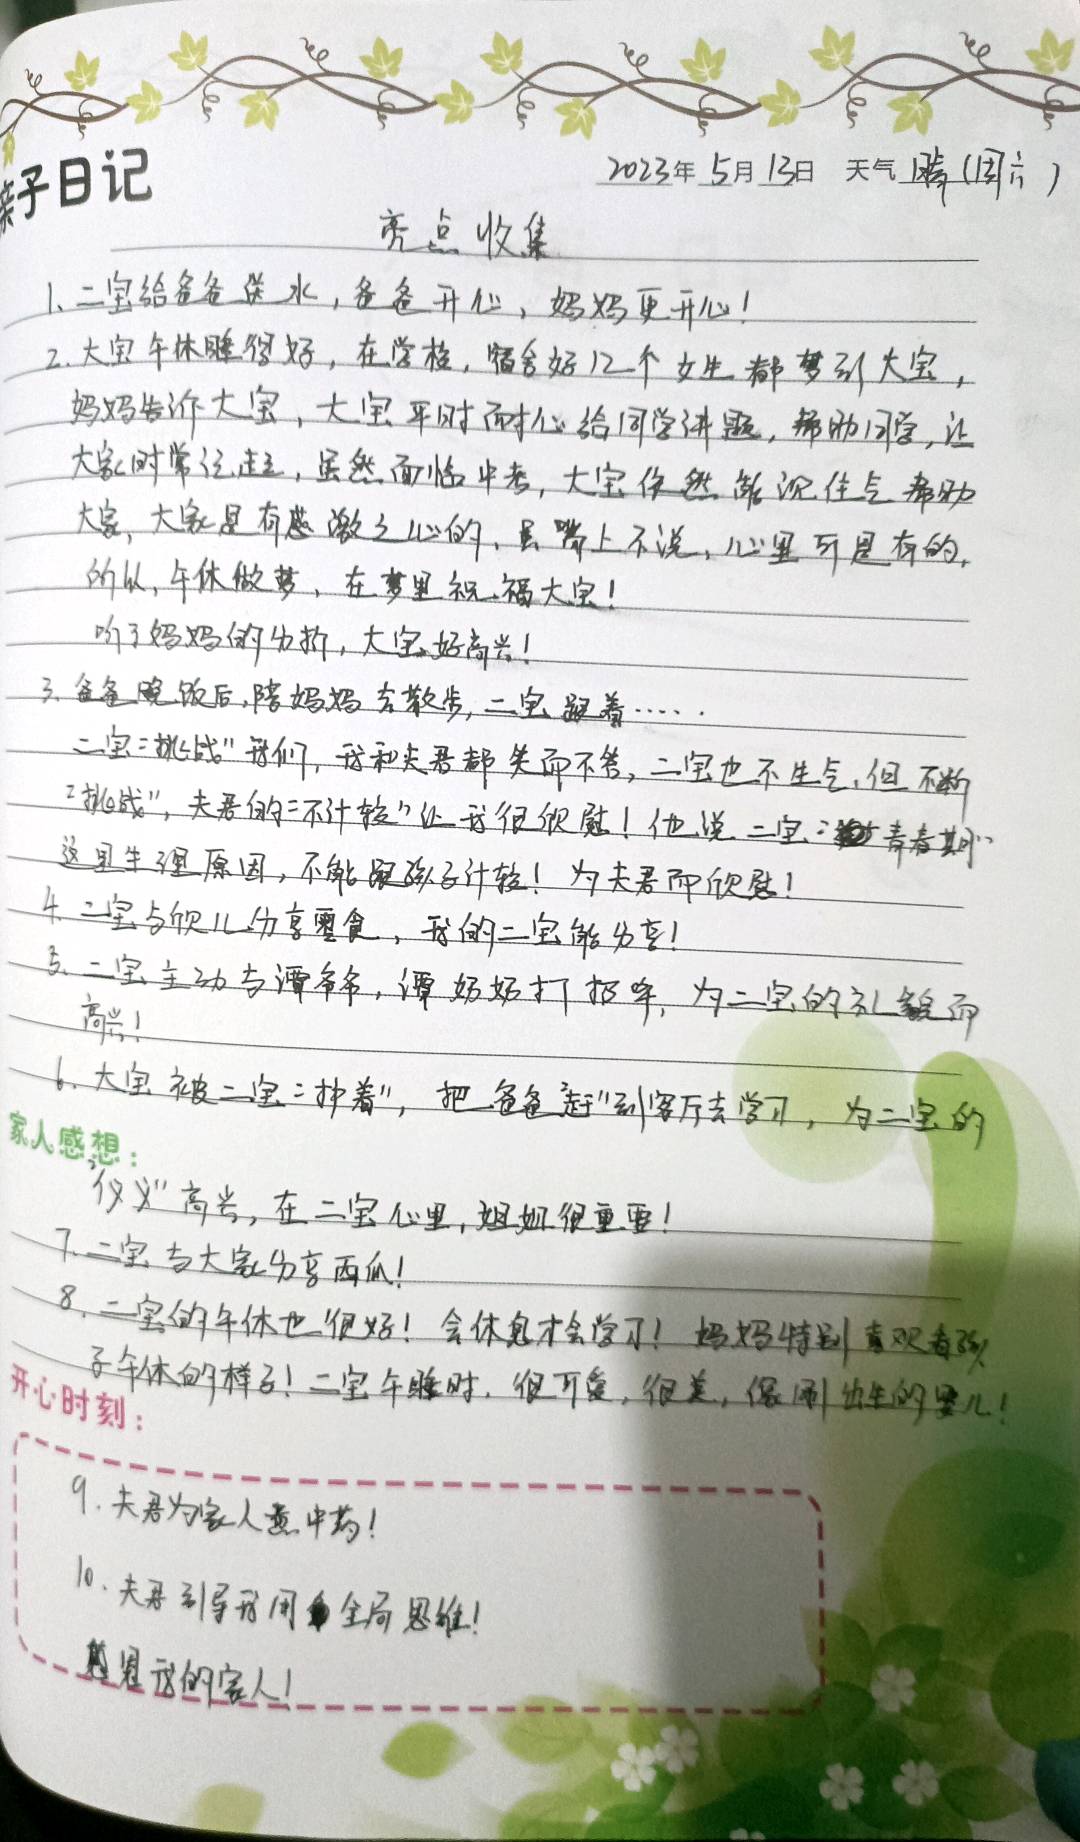 亲子日记
2023年 5月 13日 天气 晴(周六)
亮点收集
1、二宝给爸爸送水,爸爸开心,妈妈更开心!
2.大宝午休睡得好,在学校,宿舍好几个女生都梦到大宝,
妈妈告诉大宝,大宝平时耐心给同学讲题,帮助同学,让
大家时常记起,虽然面临中考,大宝依然能沉住气帮助
大家,大家是有感激之心的,虽嘴上不说,心里可是有的,
所以,午休做梦,在梦里祝福大宝!
听了妈妈的分析,大宝好高兴!
3.爸爸晚饭后,陪妈妈去散步,二宝跟着……
二宝“挑战”我们,我和夫君都笑而不答,二宝也不生气,但不断
“挑战”,夫君的“不计较”让我很欣慰!他说二宝“青春期”
这是生理原因,不能跟孩子计较!为夫君而欣慰!
4.二宝与欣儿分享零食,我的二宝能分享!
5.二宝主动与谭爷爷,谭奶奶打招呼,为二宝的礼貌而
高兴!
6.大宝被二宝“护着”,把爸爸“赶”到客厅去学习,为二宝的
家人感想:
“仪义”高兴,在二宝心里,姐姐很重要!
7.二宝与大家分享西瓜!
8.二宝的午休也很好!会休息才会学习!妈妈特别喜欢看孩
子午休的样子!二宝午睡时,很可爱,很美,像刚出生的婴儿!
开心时刻:
9.夫君为家人熬中药!
10.夫君引导我用全局思维!
感恩我的家人!